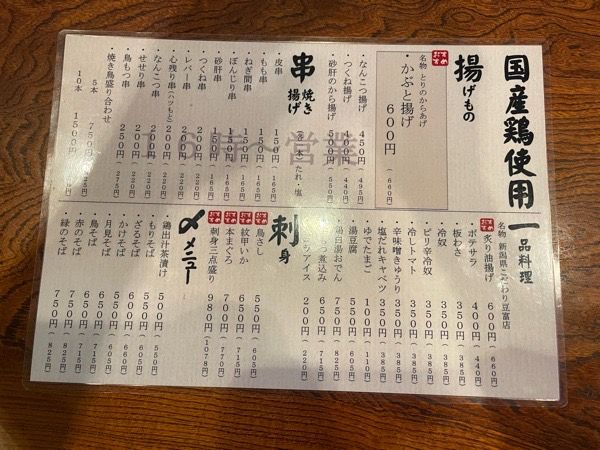 国産鶏使用
揚げもの
おすすめ
名物 とりのからあげ
・かぶと揚げ
600円
(660円)
・なんこつ揚げ 450円(495円)
・つくね揚げ 400円(440円)
・砂肝のから揚げ 500円(550円)
串 焼き 揚げ
たれ・塩
・皮串 150円(165円)
・もも串 150円(165円)
・ねぎ間串 150円(165円)
・ぼんじり串 150円(165円)
・砂肝串 150円(165円)
・つくね串 200円(220円)
・レバー串 200円(220円)
・心残り串(ハツもと) 200円(220円)
・なんこつ串 200円(220円)
・せせり串 200円(220円)
・鳥もつ串 250円(275円)
・焼き鳥盛り合わせ
5本 750円(825円)
10本 1500円
営業
一品料理
名物 新潟県こだわり豆富店
おすすめ
・炙り油揚げ 600円(660円)
・ポテサラ 400円(440円)
・板わさ 350円(385円)
・冷奴 350円(385円)
・ピリ辛冷奴 350円(385円)
・冷しトマト 350円(385円)
・辛味噌きゅうり 350円(385円)
・塩だれキャベツ 350円(385円)
・ゆでたまご 100円(110円)
・湯豆腐 550円(605円)
・鶏白湯おでん 750円(825円)
つ煮込み 650円(715円)
アイス 200円(220円)
刺身
おすすめ
・鳥さし 550円(605円)
おすすめ
・紋甲いか 600円(660円)
おすすめ
・本まぐろ 700円(770円)
おすすめ
・刺身三点盛り 980円(1078円)
〆メニュー
・鶏出汁茶漬け 500円(550円)
・もりそば 500円(550円)
・ざるそば 550円(605円)
・かけそば 550円(605円)
・月見そば 600円(660円)
・鳥そば 650円(715円)
・赤のそば 650円(715円)
・緑のそば 750円(825円)